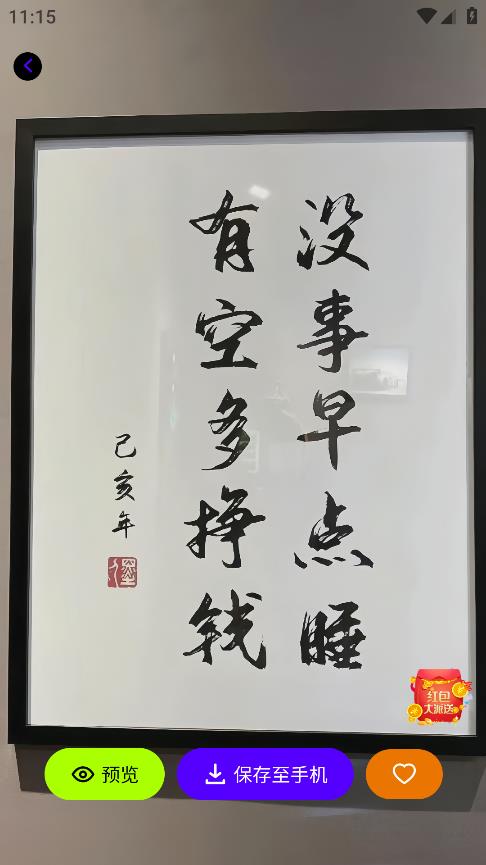 11:15
没事早点睡
有空多挣钱
己亥年
红包
大派送
预览
保存至手机